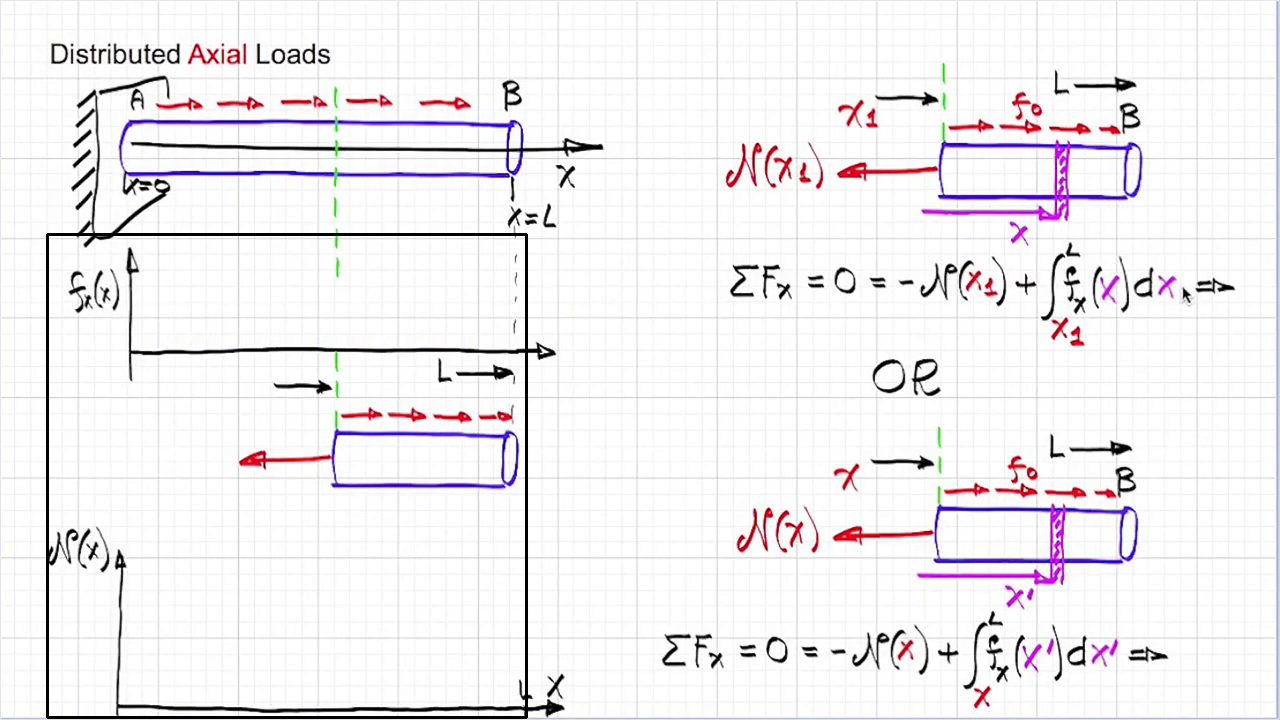 Distributed Axial Loads
A
B
x=0
x
x=L
fx(x)
L
N(x)
L x
L
x1
f0
B
N(x1)
x
ΣFx = 0 = -N(x1) + ∫x1^L fx(x)dx ⇒
OR
L
x
f0
B
N(x)
x'
ΣFx = 0 = -N(x) + ∫x^L fx(x')dx' ⇒